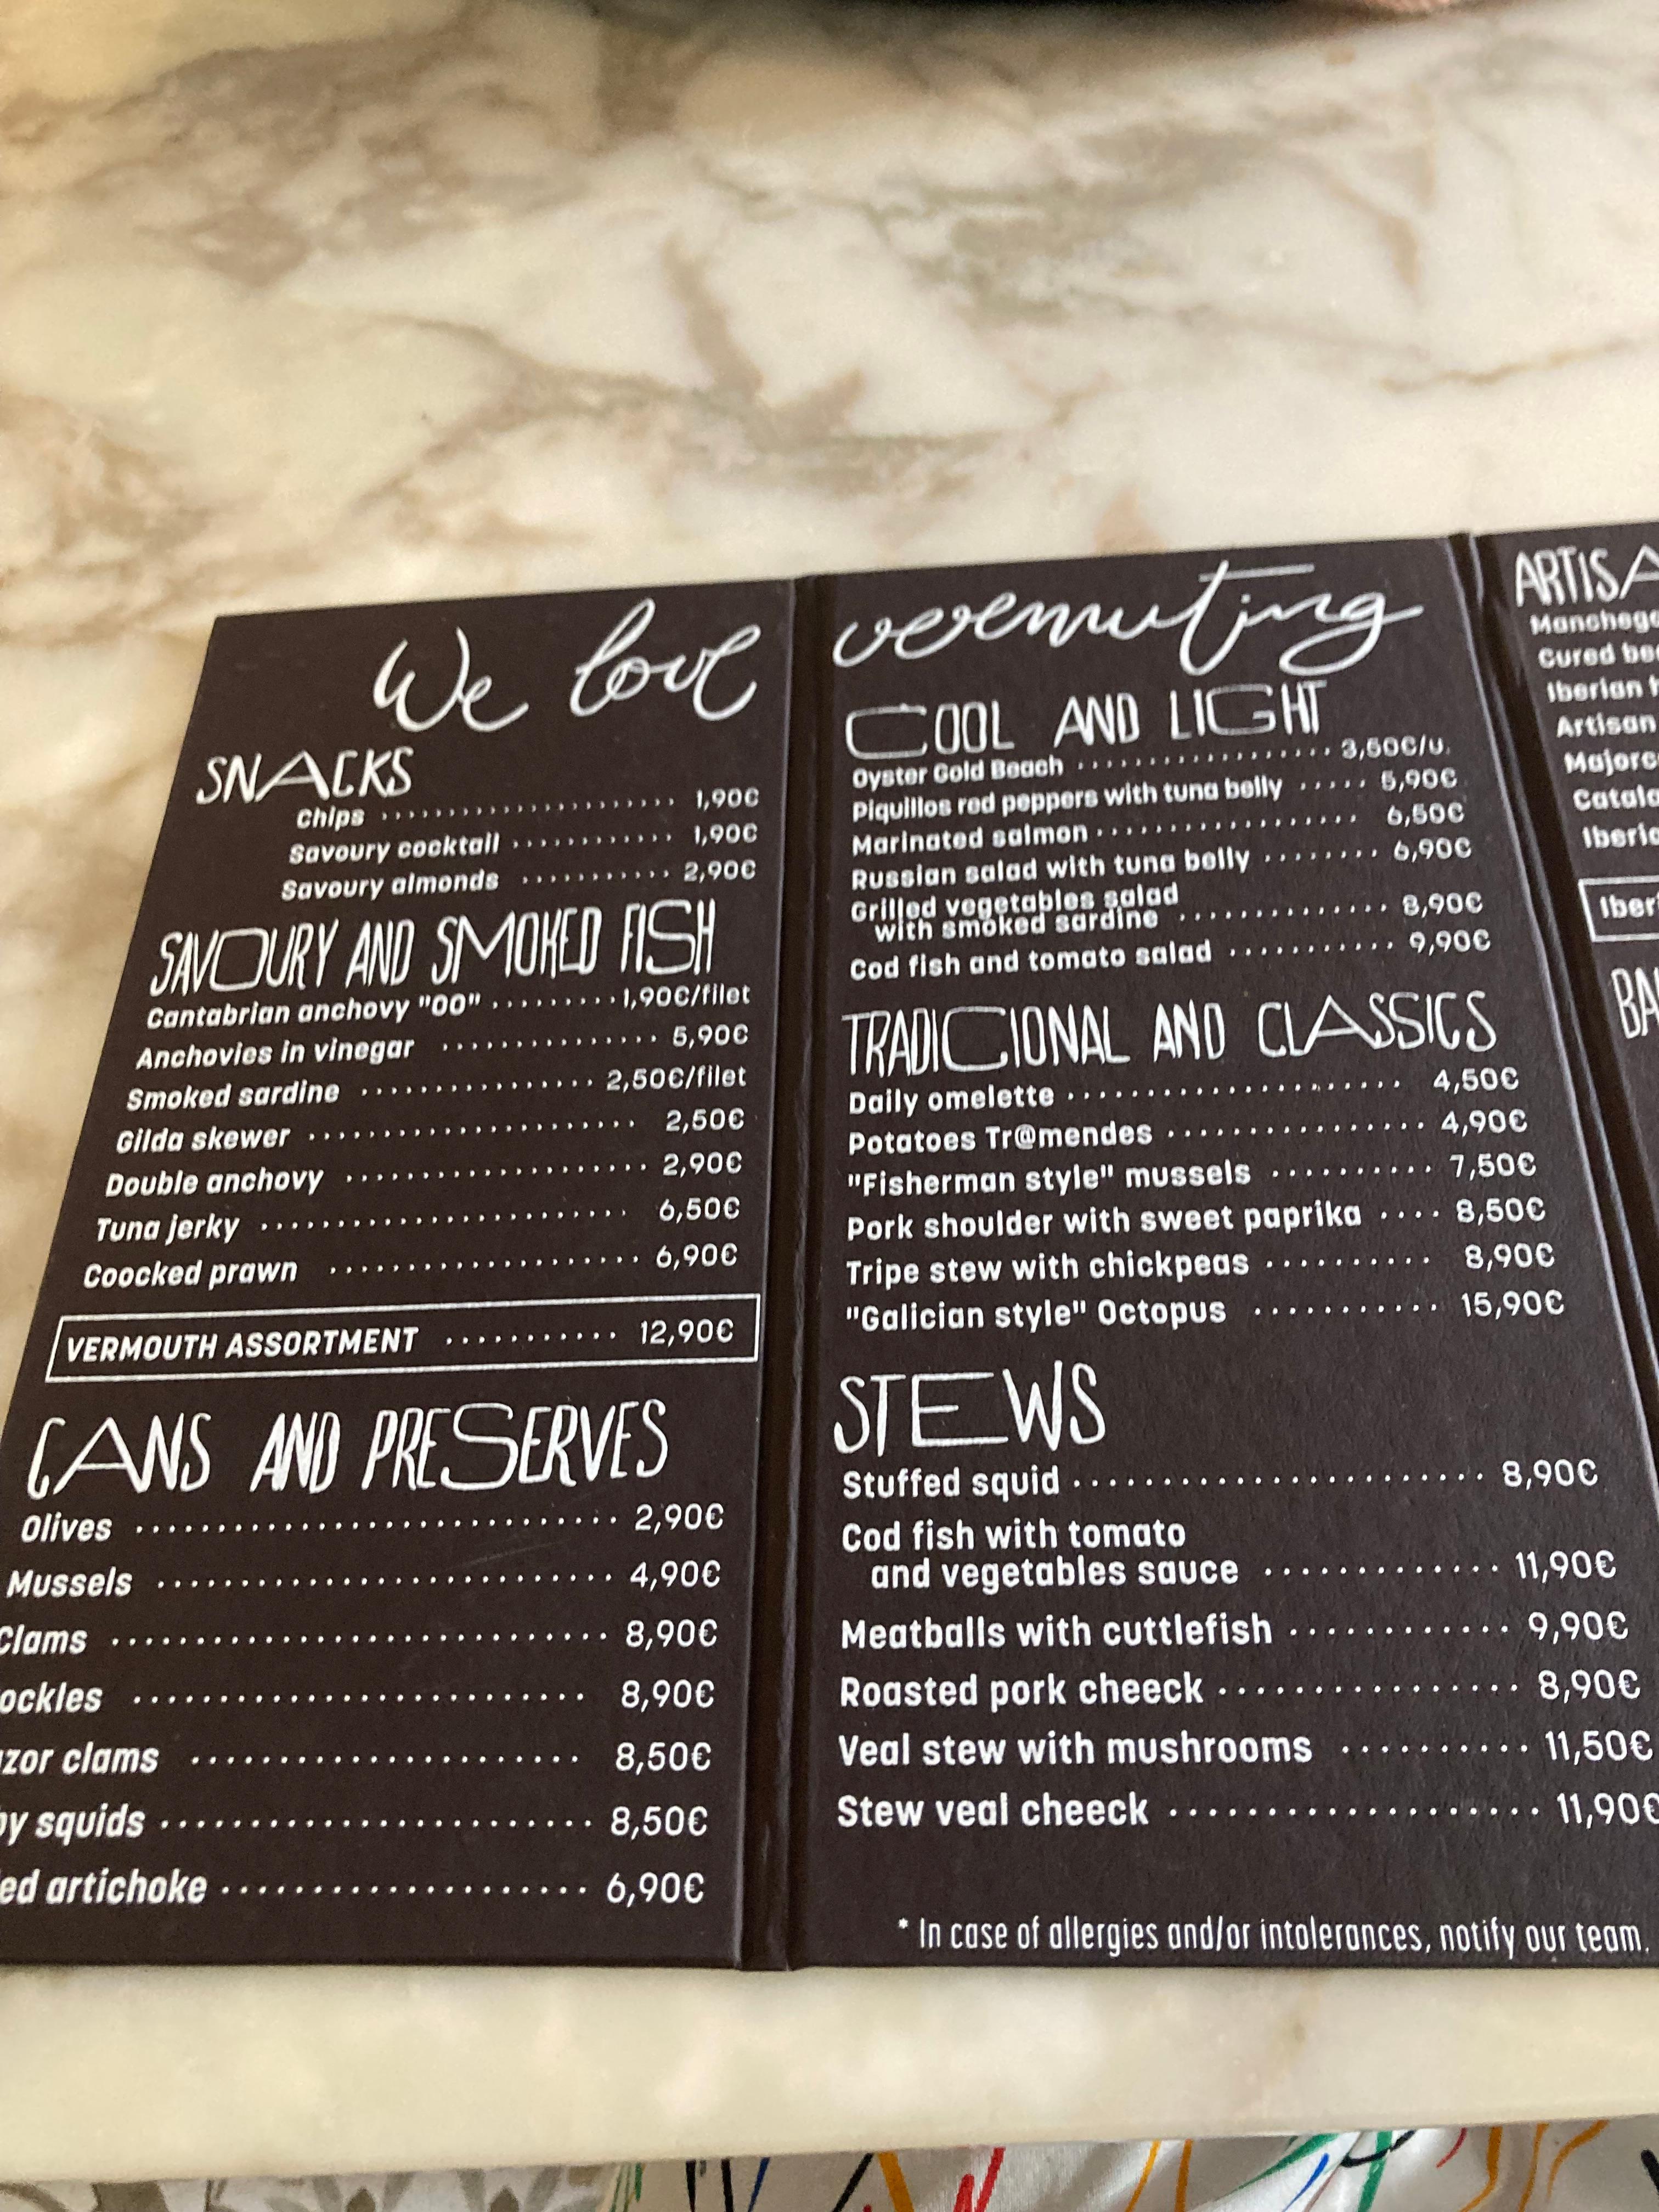 We love
SNACKS
Chips ........................ 1,90€
Savoury cocktail ............ 1,90€
Savoury almonds ........... 2,90€
SAVOURY AND SMOKED FISH
Cantabrian anchovy "00" ......... 1,90€/filet
Anchovies in vinegar ................ 5,90€
Smoked sardine ................. 2,50€/filet
Gilda skewer ........................ 2,50€
Double anchovy ..................... 2,90€
Tuna jerky ......................... 6,50€
Coocked prawn ..................... 6,90€
VERMOUTH ASSORTMENT ............ 12,90€
CANS AND PRESERVES
Olives .............................. 2,90€
Mussels ............................ 4,90€
Clams .............................. 8,90€
ockles ............................ 8,90€
zor clams ........................ 8,50€
by squids .......................... 8,50€
ed artichoke ..................... 6,90€
vermuting
COOL AND LIGHT
Oyster Gold Beach ................ 3,50€/u.
Piquillos red peppers with tuna belly ..... 5,90€
Marinated salmon .................. 6,50€
Russian salad with tuna belly ........ 6,90€
Grilled vegetables salad
with smoked sardine .............. 8,90€
Cod fish and tomato salad ........... 9,90€
TRADICIONAL AND CLASSICS
Daily omelette ....................... 4,50€
Potatoes Tr@mendes ................ 4,90€
"Fisherman style" mussels .......... 7,50€
Pork shoulder with sweet paprika .... 8,50€
Tripe stew with chickpeas .......... 8,90€
"Galician style" Octopus ........... 15,90€
STEWS
Stuffed squid ........................ 8,90€
Cod fish with tomato
and vegetables sauce ............. 11,90€
Meatballs with cuttlefish ............ 9,90€
Roasted pork cheeck ................ 8,90€
Veal stew with mushrooms .......... 11,50€
Stew veal cheeck ................... 11,90€
* In case of allergies and/or intolerances, notify our team.
ARTISA
Manchego
Cured
Iberian
Artisan
Iberi
BA